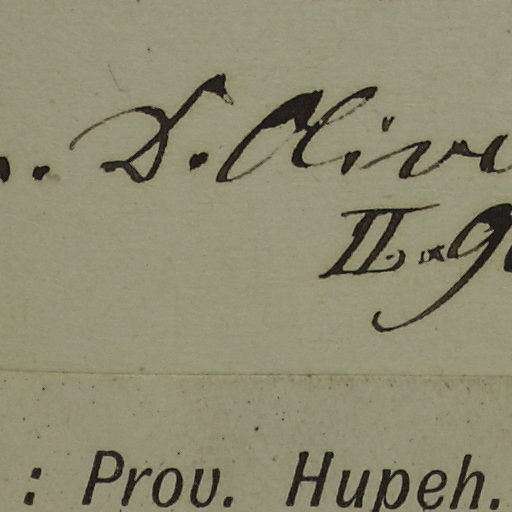 . D. Olive
II. 9
: Prov. Hupeh.